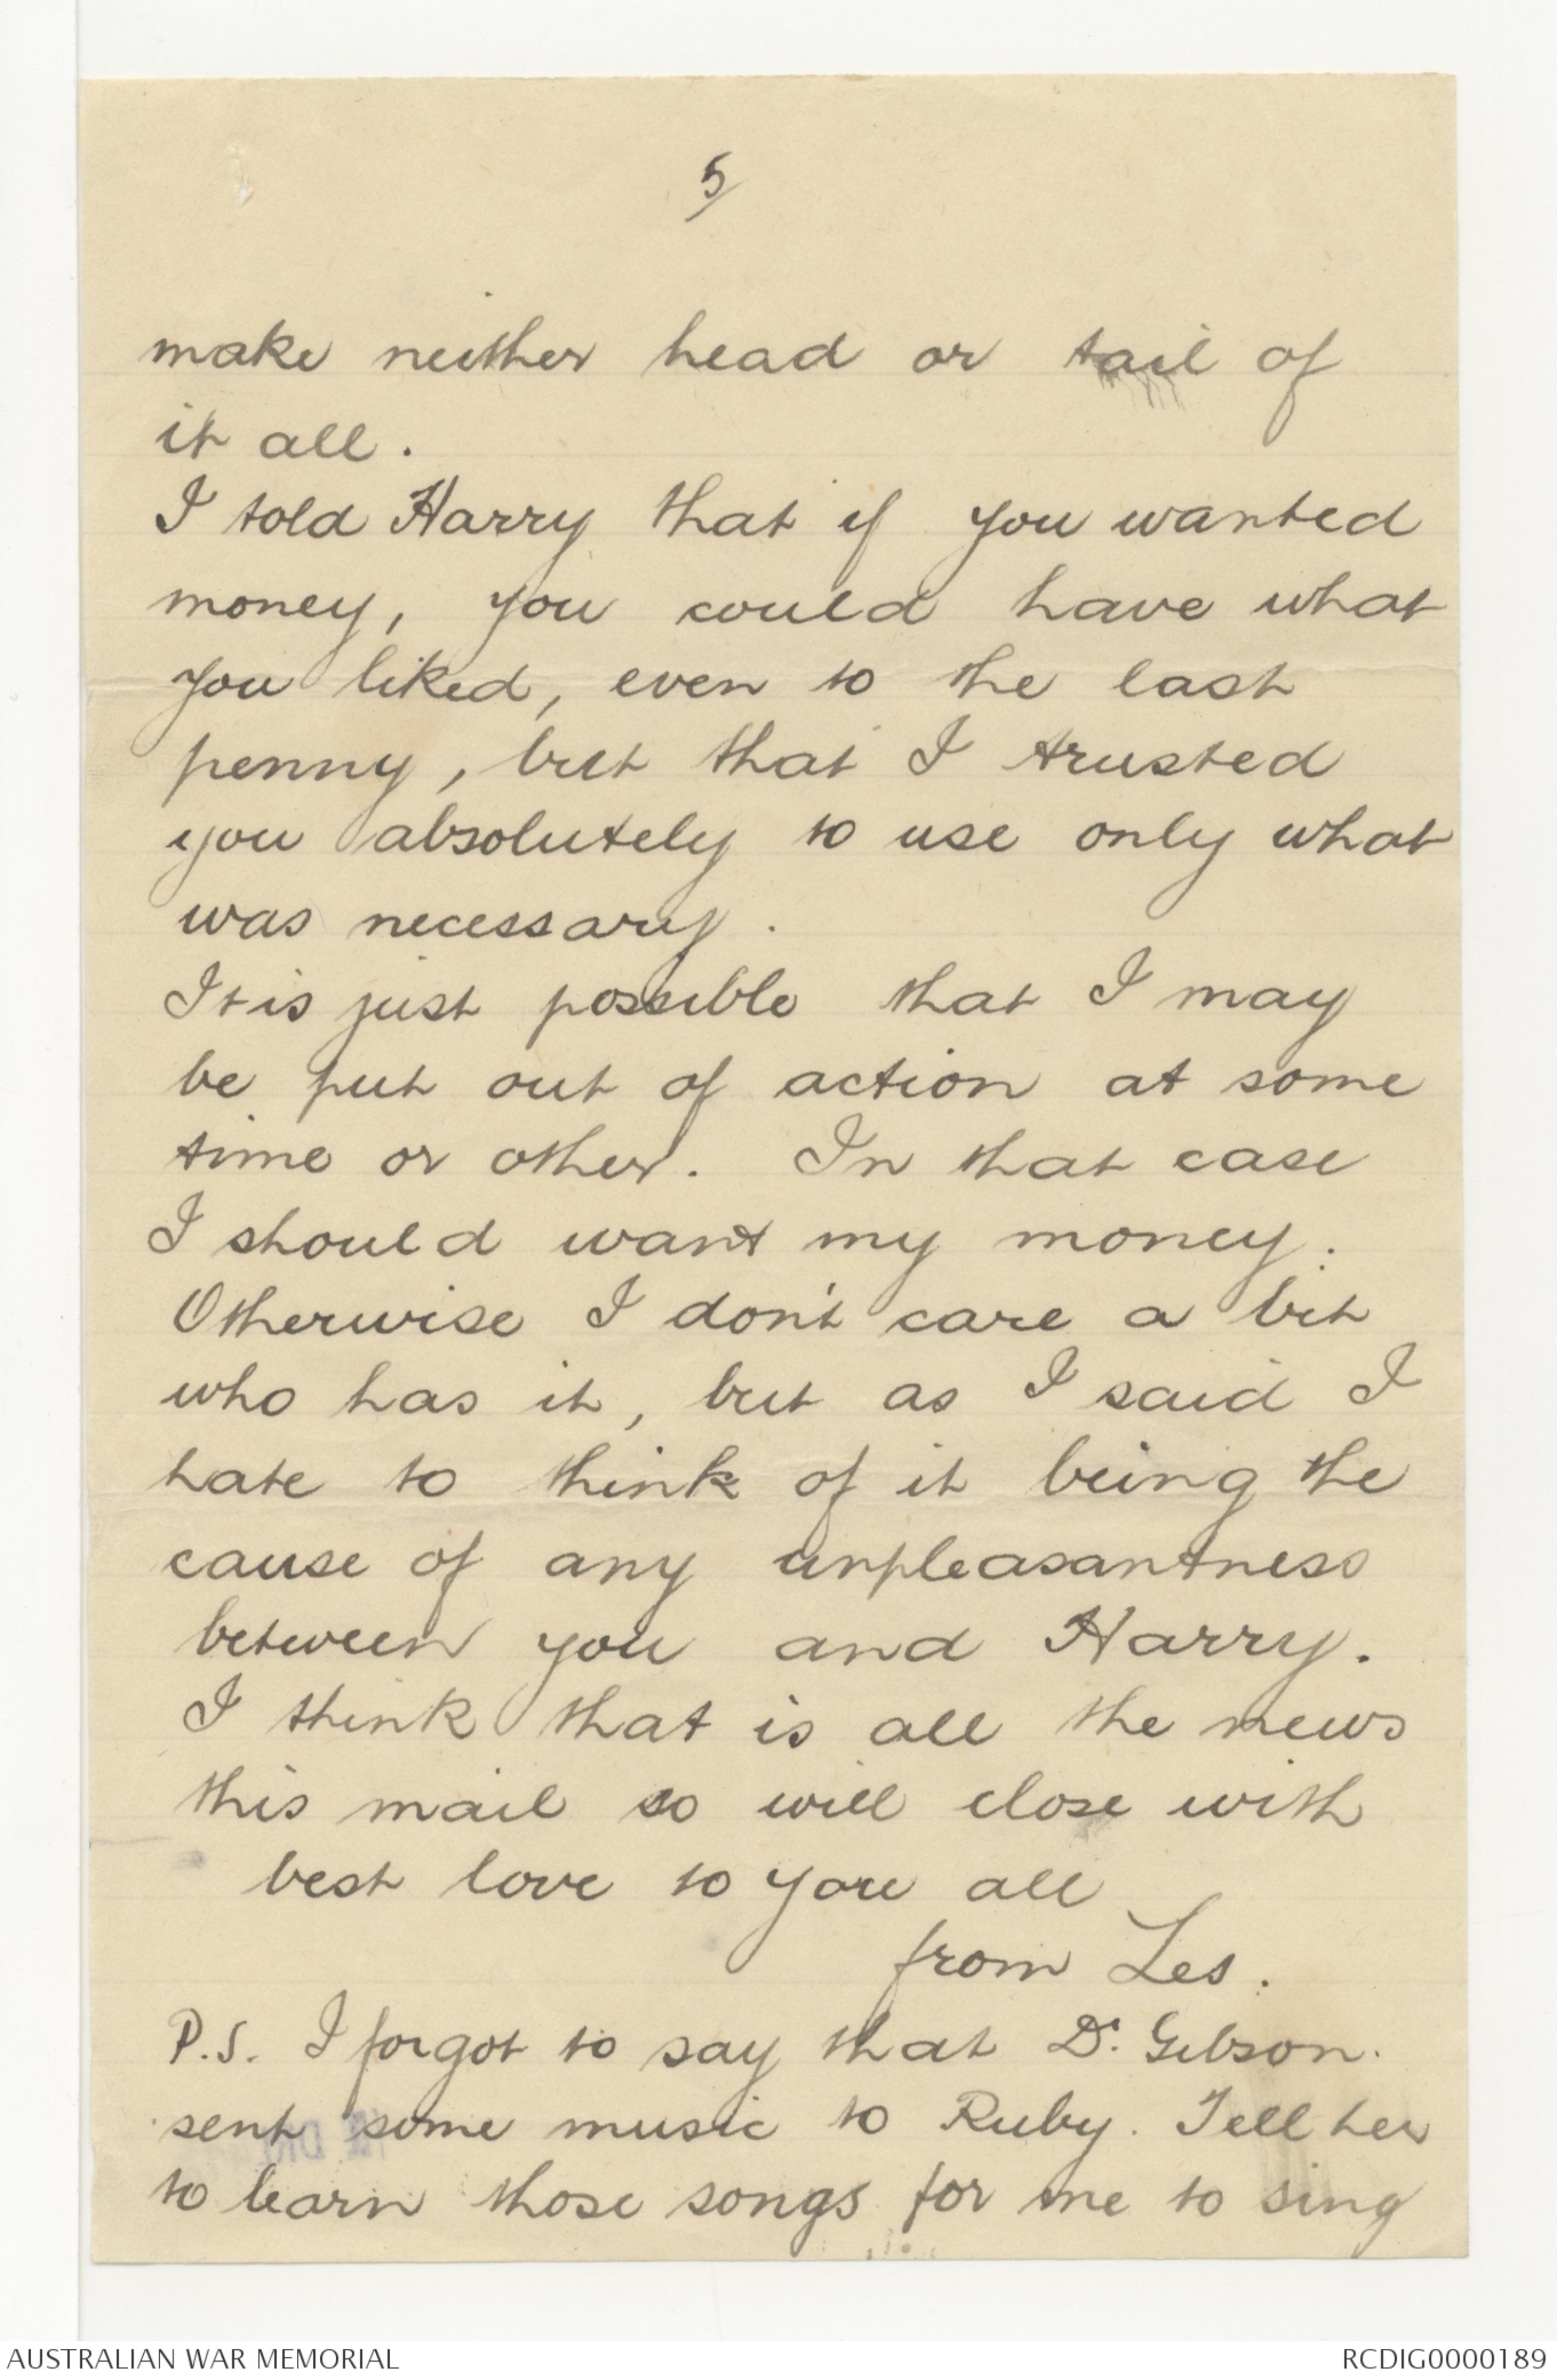 5/
make neither head or tail of
it all.
I told Harry that if you wanted
money, you could have what
you liked, even to the last
penny, but that I trusted
you absolutely to use only what
was necessary.
It is just possible that I may
be put out of action at some
time or other. In that case
I should want my money.
Otherwise I don't care a bit
who has it, but as I said I
hate to think of it being the
cause of any unpleasantness
between you and Harry.
I think that is all the news
this mail so will close with
best love to you all
from Les.
P.S. I forgot to say that Dr. Gibson.
sent some music to Ruby. Tell her
to learn those songs for me to sing
AUSTRALIAN WAR MEMORIAL
RCDIG0000189